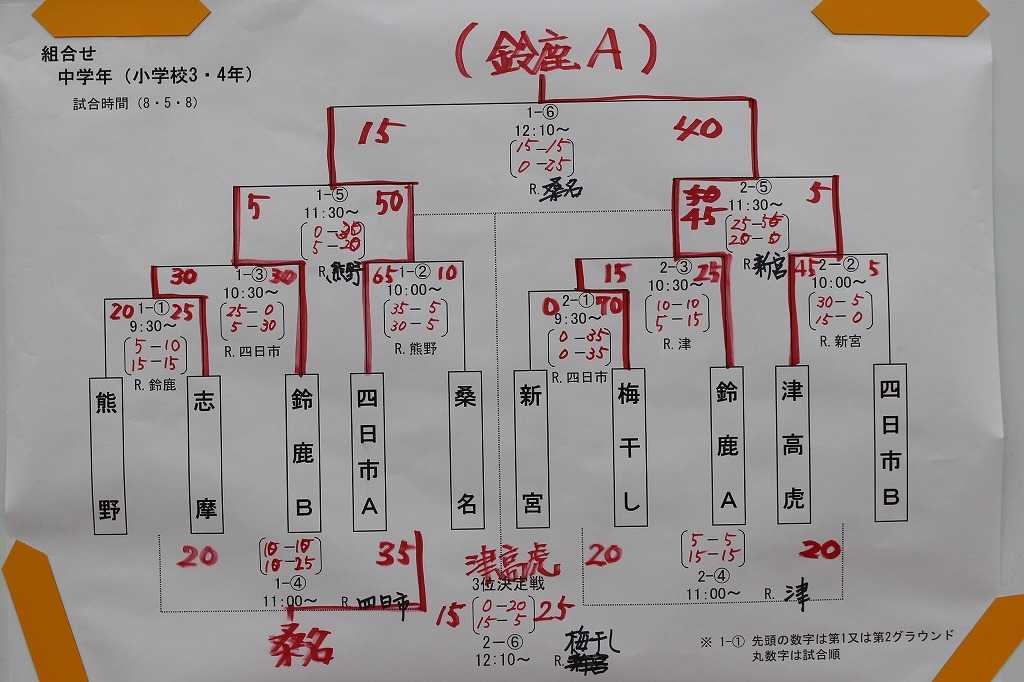 組合せ
中学年（小学校3・4年）
試合時間（8・5・8）
（鈴鹿A）
1-⑥
12:10～
15 40
15-15
0-25
R. 桑名
1-⑤
11:30～
5 50
5-20
R. 熊野
2-⑤
11:30～
45 5
R. 新宮
1-③
10:30～
30 30
25-0
5-30
R. 四日市
1-②
10:00～
65 10
35-5
30-5
R. 熊野
2-③
10:30～
15 25
10-10
5-15
R. 津
2-②
10:00～
45 5
30-5
15-0
R. 新宮
1-①
9:30～
20 25
5-10
15-15
R. 鈴鹿
2-①
9:30～
0 70
0-35
0-35
R. 四日市
熊野
志摩
鈴鹿B
四日市A
桑名
新宮
梅干し
鈴鹿A
津高虎
四日市B
20 35
10-10
10-25
1-④
11:00～
R. 四日市
桑名
津高虎
3位決定戦
15 25
0-20
15-5
2-⑥
12:10～
R. 梅干し
20 20
5-5
15-15
2-④
11:00～
R. 津
※ 1-① 先頭の数字は第1又は第2グラウンド
丸数字は試合順